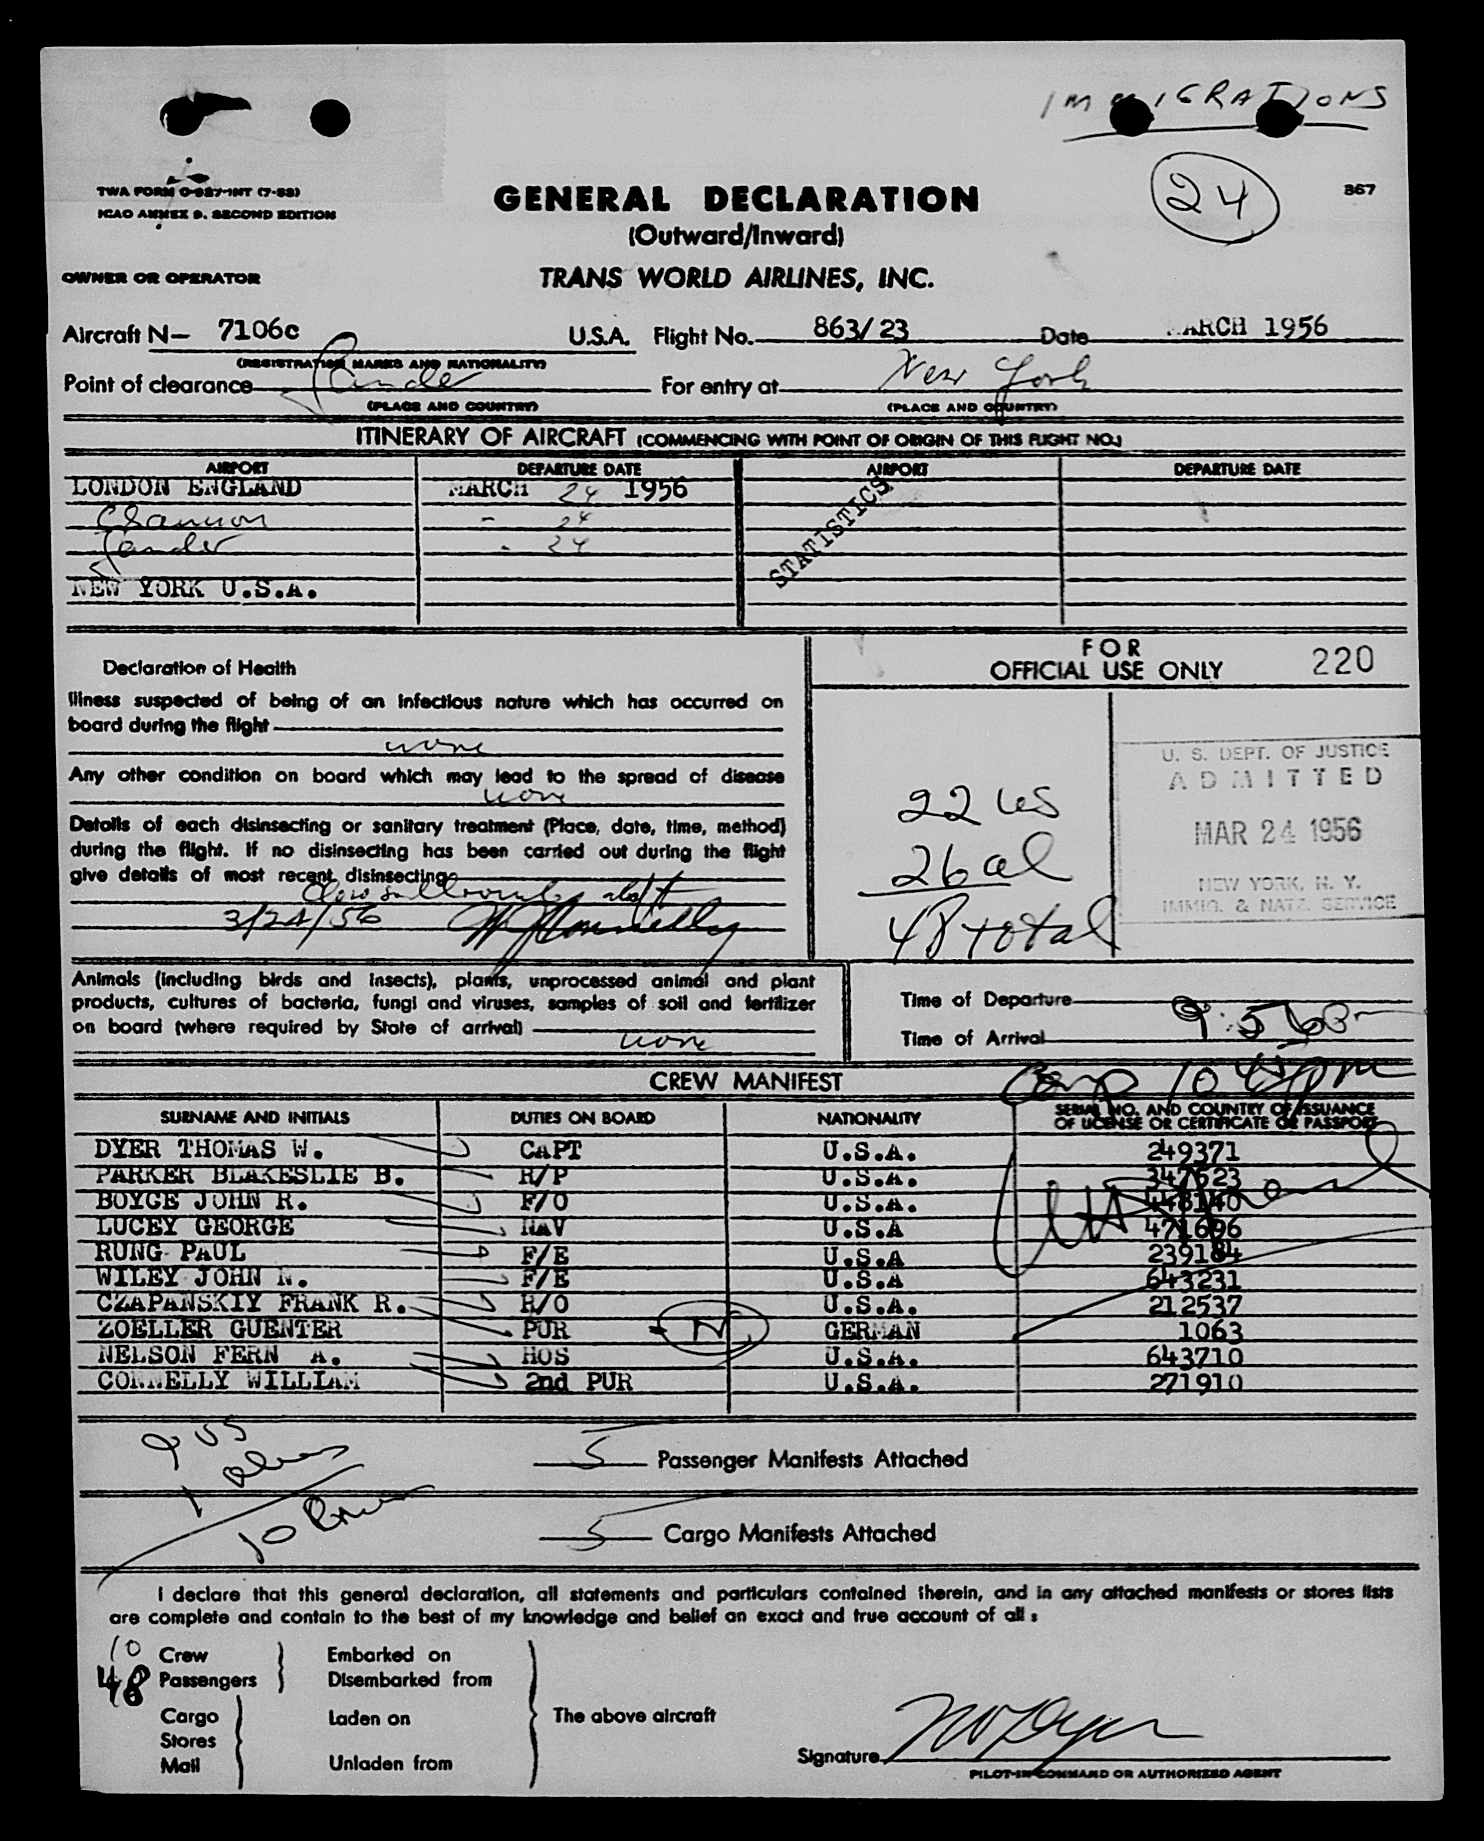 IMMIGRATIONS
TWA FORM O-927-INT (7-53)
ICAO ANNEX 9, SECOND EDITION
GENERAL DECLARATION
(Outward/Inward)
24
867
OWNER OR OPERATOR
TRANS WORLD AIRLINES, INC.
Aircraft N– 7106c U.S.A. Flight No. 863/23 Date MARCH 1956
(REGISTRATION MARKS AND NATIONALITY)
Point of clearance Gander For entry at New York
(PLACE AND COUNTRY) (PLACE AND COUNTRY)
ITINERARY OF AIRCRAFT (COMMENCING WITH POINT OF ORIGIN OF THIS FLIGHT NO.)
AIRPORT DEPARTURE DATE AIRPORT DEPARTURE DATE
LONDON ENGLAND MARCH 24 1956
Shannon - 24
Gander - 24
STATISTICS
NEW YORK U.S.A.
Declaration of Health
Illness suspected of being of an infectious nature which has occurred on
board during the flight
none
Any other condition on board which may lead to the spread of disease
none
Details of each disinsecting or sanitary treatment (Place, date, time, method)
during the flight. If no disinsecting has been carried out during the flight
give details of most recent disinsecting
3/24/56 Connelly
FOR
OFFICIAL USE ONLY 220
22 us
26 al
48 total
U. S. DEPT. OF JUSTICE
ADMITTED
MAR 24 1956
NEW YORK, N. Y.
IMMIG. & NATZ. SERVICE
Animals (including birds and insects), plants, unprocessed animal and plant
products, cultures of bacteria, fungi and viruses, samples of soil and fertilizer
on board (where required by State of arrival)
none
Time of Departure
Time of Arrival
9:56
Comp 10 45 pm
CREW MANIFEST
SURNAME AND INITIALS DUTIES ON BOARD NATIONALITY SERIAL NO. AND COUNTRY OF ISSUANCE
OF LICENSE OR CERTIFICATE OR PASSPORT
DYER THOMAS W. CAPT U.S.A. 249371
PARKER BLAKESLIE B. R/P U.S.A. 347523
BOYCE JOHN R. F/O U.S.A. 448140
LUCEY GEORGE NAV U.S.A 471696
RUNG PAUL F/E U.S.A 239184
WILEY JOHN N. F/E U.S.A 643231
CZAPANSKIY FRANK R. R/O U.S.A. 212537
ZOELLER GUENTER PUR N GERMAN 1063
NELSON FERN A. HOS U.S.A. 643710
CONNELLY WILLIAM 2nd PUR U.S.A. 271910
9 US
1 alien
10 Crew
5 Passenger Manifests Attached
5 Cargo Manifests Attached
I declare that this general declaration, all statements and particulars contained therein, and in any attached manifests or stores lists
are complete and contain to the best of my knowledge and belief an exact and true account of all :
10 Crew Embarked on
48 Passengers Disembarked from
Cargo Laden on The above aircraft
Stores
Mail Unladen from
Signature TW Dyer
PILOT-IN-COMMAND OR AUTHORIZED AGENT